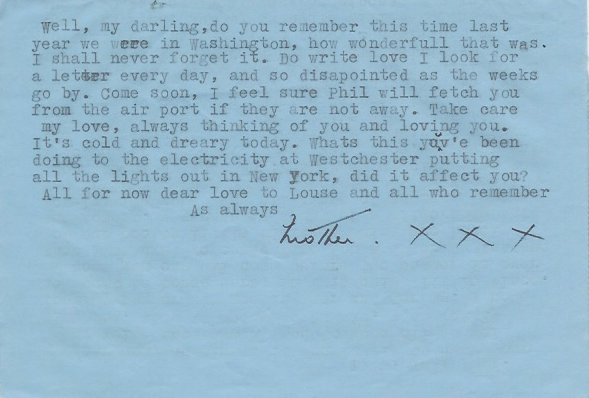 Well, my darling,do you remember this time last
year we were in Washington, how wonderfull that was.
I shall never forget it. Do write love I look for
a letter every day, and so disapointed as the weeks
go by. Come soon, I feel sure Phil will fetch you
from the air port if they are not away. Take care
my love, always thinking of you and loving you.
It's cold and dreary today. Whats this yuv'e been
doing to the electricity at Westchester putting
all the lights out in New York, did it affect you?
All for now dear love to Louse and all who remember
As always
Mother. X X X